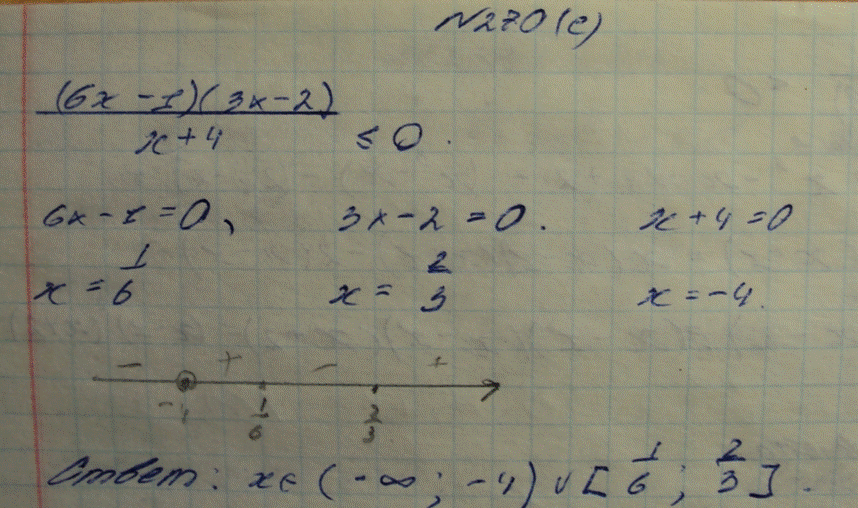 N270(е)
(6x-1)(3x-2)
x+4 ≤ 0.
6x-1=0, 3x-2=0. x+4=0
x=1/6 x=2/3 x=-4.
- + - +
-4 1/6 2/3
Ответ: x∈(-∞; -4)∪[1/6; 2/3].